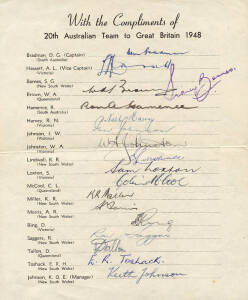 With the Compliments of
20th Australian Team to Great Britain 1948
Bradman, D. G. (Captain)
(South Australia)
Hassett, A. L. (Vice Captain)
(Victoria)
Barnes, S. G.
(New South Wales)
Brown, W. A.
(Queensland)
Hamence, R. A.
(South Australia)
Harvey, R. N.
(Victoria)
Johnson, I. W.
(Victoria)
Johnston, W. A.
(Victoria)
Lindwall, R. R.
(New South Wales)
Loxton, S.
(Victoria)
Sam Loxton
McCool, C. L.
(Queensland)
Colin McCool
Miller, K. R.
(New South Wales)
Morris, A. R.
(New South Wales)
Ring, D.
(Victoria)
D Ring
Saggers, R.
(New South Wales)
Tallon, D.
(Queensland)
D Tallon
Toshack, E. R. H.
(New South Wales)
E. R. Toshack.
Johnson, K. O. E. (Manager)
(New South Wales)
Keith Johnson